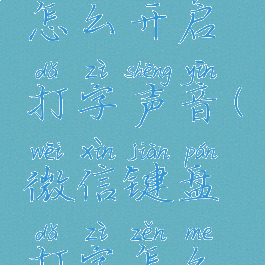 怎么开启
dǎ zì shēng yīn
打字声音(
wēi xìn jiàn pán
微信键盘
dǎ zì zěn me
打字怎么